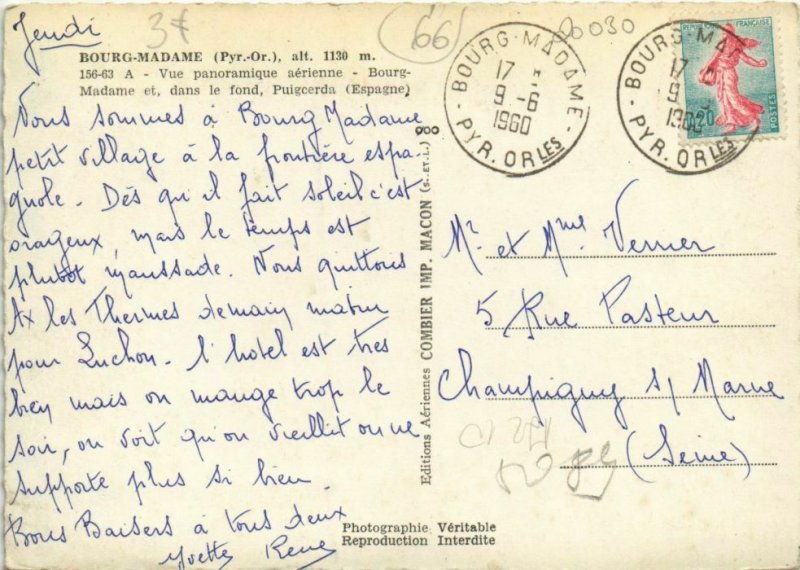 Jeudi
3F
(66)
00030
BOURG-MADAME (Pyr.-Or.), alt. 1130 m.
156-63 A - Vue panoramique aérienne - Bourg-
Madame et, dans le fond, Puigcerda (Espagne)
Nous sommes à Bourg Madame
petit village à la frontière espa-
gnole. Dés qu'il fait soleil c'est
orageux, mais le temps est
plutôt maussade. Nous quittons
Ax les Thermes demain matin
pour Luchon. l'hôtel est tres
bien mais on mange trop le
soir, on voit qu'on vieillit on ne
supporte plus si bien.
Bons Baisers à tous deux
Yvette René
Editions Aériennes COMBIER IMP. MACON (S.-et-L.)
Photographie Véritable
Reproduction Interdite
BOURG-MADAME
17 H
9-6
1960
PYR. ORLES
BOURG-MA
17
9
1960
PYR. ORLES
FRANÇAISE
0,20
POSTES
Mr et Mme Verrier
5 Rue Pasteur
Champigny s/ Marne
(Seine)